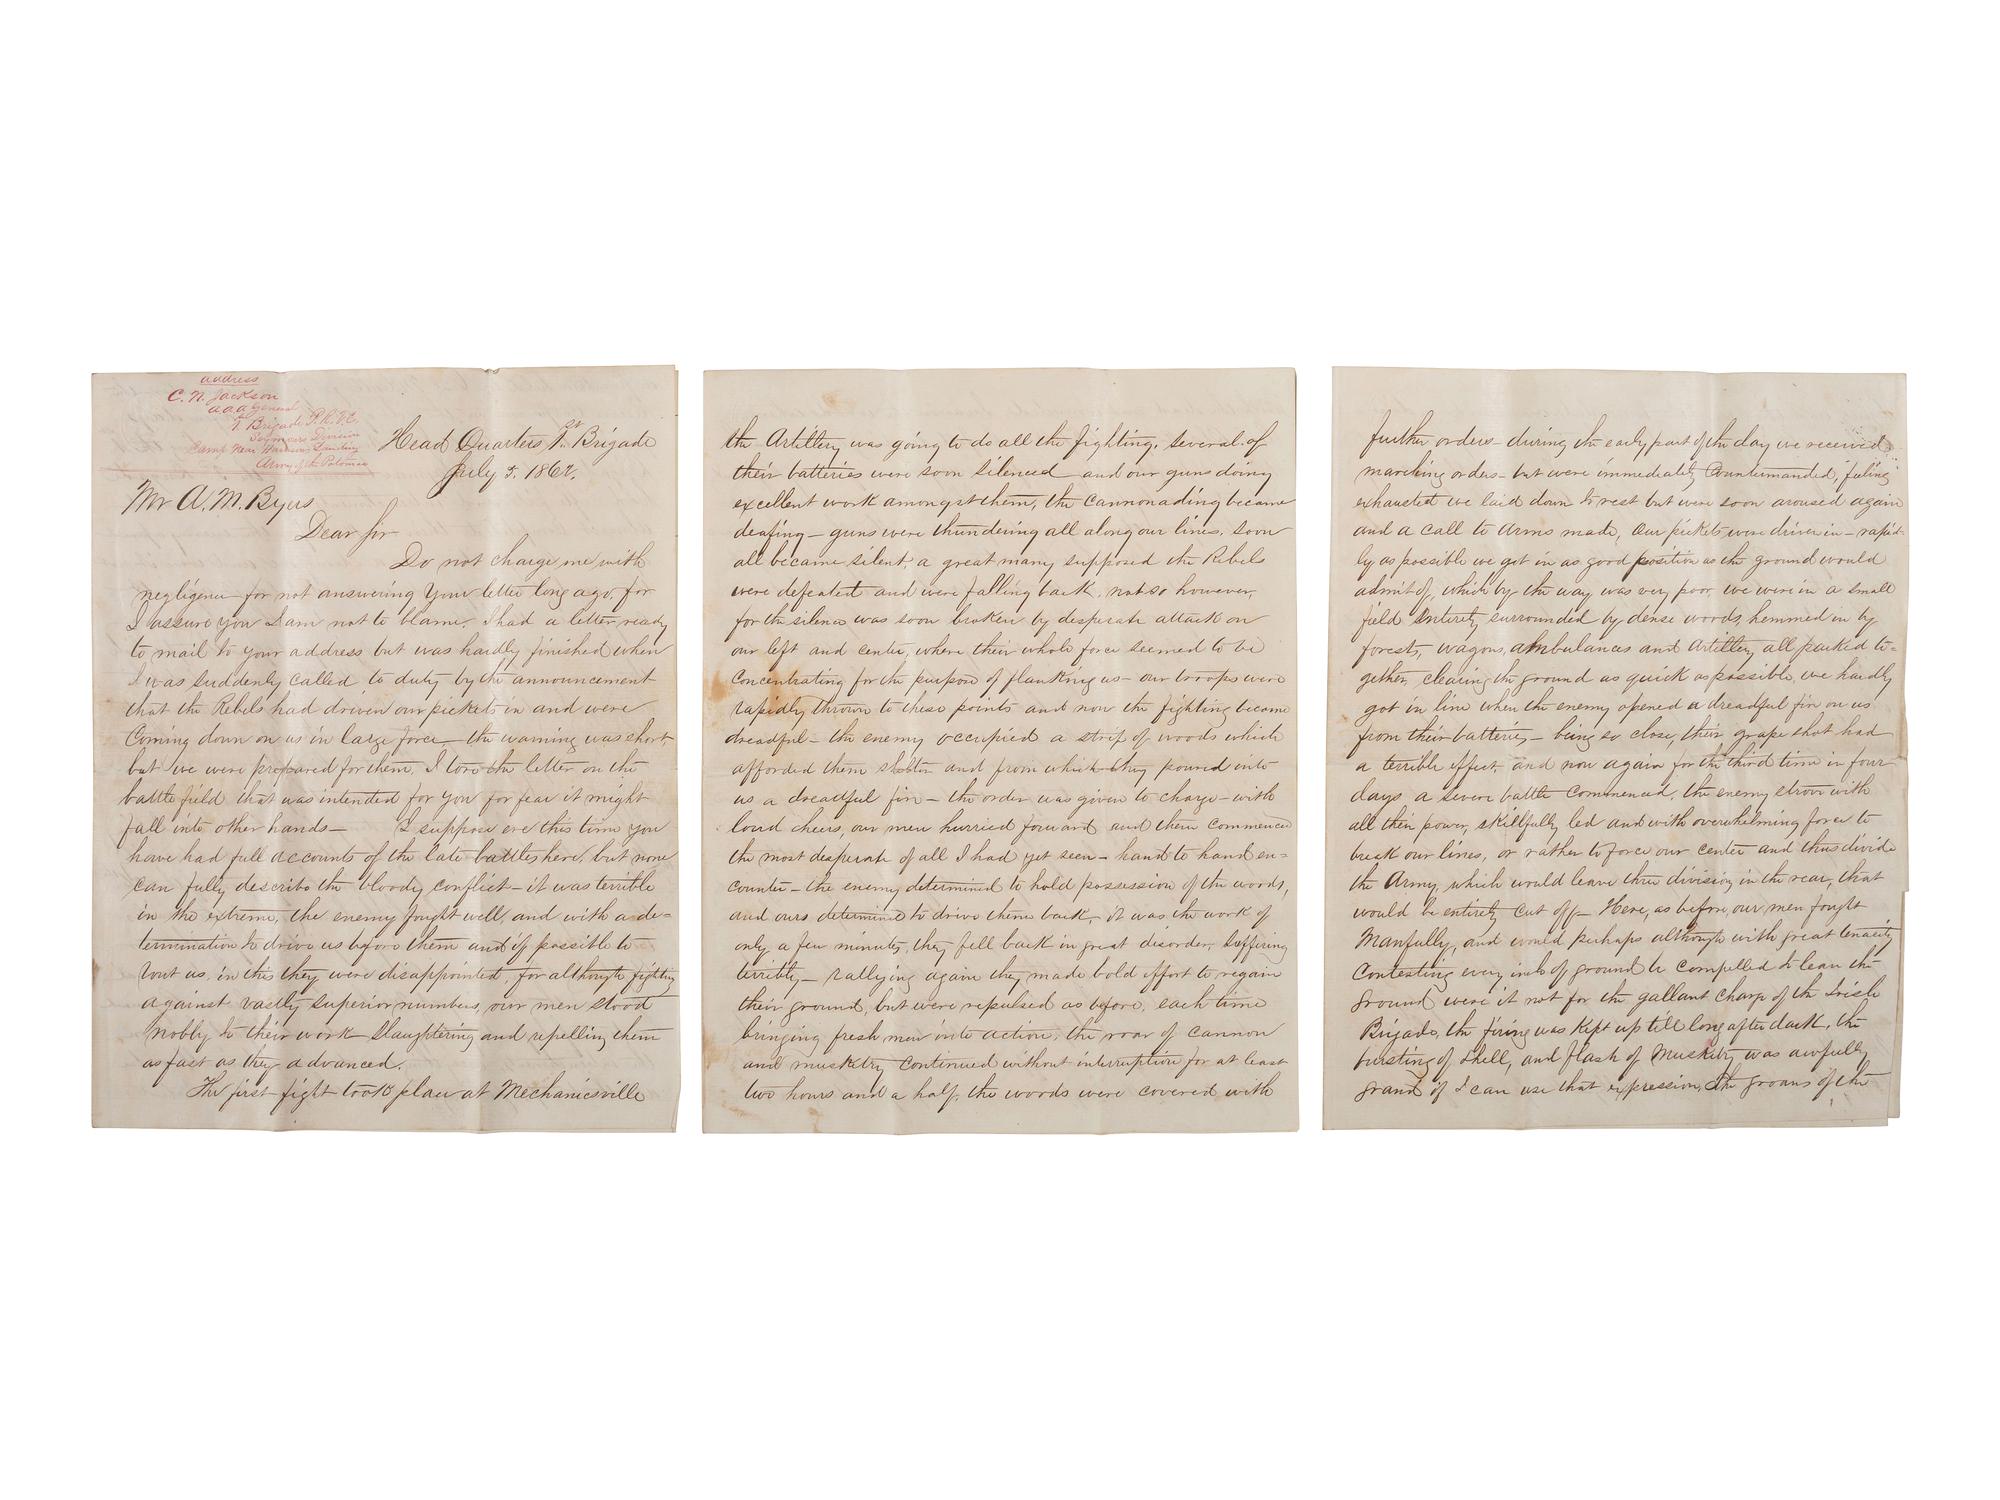 address
C. N. Jackson
a a a General
1st Brigade P.R.V.C.
Seymours Division
Camp Near Harrisons Landing
Army of the Potomac
Head Quarters 1st Brigade
July 5. 1862.
Mr A. M. Byers
Dear sir
Do not charge me with
negligence for not answering your letter long ago, for
I assure you I am not to blame. I had a letter ready
to mail to your address but was hardly finished when
I was suddenly called to duty by the announcement
that the Rebels had driven our pickets in and were
Coming down on us in large force — the warning was short
but we were prepared for them, I tore the letter on the
battle field that was intended for you for fear it might
fall into other hands — I suppose ere this time you
have had full accounts of the late battles here, but none
can fully describe the bloody conflict — it was terrible
in the extreme, the enemy fought well and with a de=
termination to drive us before them and if possible to
rout us, in this they were disappointed, for although fighting
against vastly superior numbers, our men stood
nobly to their work Slaughtering and repelling them
as fast as they advanced.
The first fight took place at Mechanicsville
the Artillery was going to do all the fighting. Several of
their batteries were soon silenced and our guns doing
excellent work amongst them, the cannonading became
deafing — guns were thundering all along our lines, soon
all became silent, a great many supposed the Rebels
were defeated and were falling back, not so however,
for the silence was soon broken by desperate attack on
our left and center, where their whole force seemed to be
Concentrating for the purpose of flanking us — our troops were
rapidly thrown to these points and now the fighting became
dreadful — the enemy occupied a strip of woods which
afforded them shelter and from which they poured into
us a dreadful fire — the order was given to charge — with
loud cheers, our men hurried forward and then commenced
the most desperate of all I had yet seen — hand to hand en=
counter — the enemy determined to hold possession of the woods,
and ours determined to drive them back, it was the work of
only a few minutes, they fell back in great disorder, suffering
terribly — rallying again they made bold effort to regain
their ground, but were repulsed as before, each time
bringing fresh men into action, the roar of cannon
and musketry continued without interruption for at least
two hours and a half, the woods were covered with
further orders — during the early part of the day we received
marching orders — but were immediately Countermanded, feeling
exhausted we laid down to rest but were soon aroused again
and a call to Arms made, our pickets were driven in — rapid-
ly as possible we got in as good position as the ground would
admit of, which by the way was very poor, we were in a small
field Entirely surrounded by dense woods, hemmed in by
forest, wagons, ambulances and Artillery all packed to=
gether, clearing the ground as quick as possible, we hardly
got in line when the enemy opened a dreadful fire on us
from their batteries — being so close, their grape shot had
a terrible effect, and now again for the third time in four
days a severe battle Commenced, the enemy strove with
all their power, skillfully led and with overwhelming force to
break our lines, or rather to force our center and thus divide
the Army, which would leave three division in the rear, that
would be entirely cut off — Here, as before, our men fought
Manfully, and would perhaps although with great tenacity
Contesting every inch of ground be compelled to leave the
ground were it not for the gallant charge of the Irish
Brigade, the firing was kept up till long after dark, the
bursting of shell, and flash of Musketry was awfully
grand if I can use that expression, the groans of the